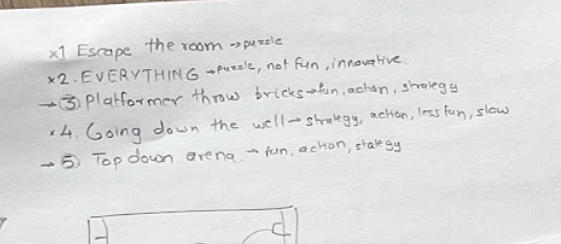 x1 Escape the room → puzzle
x2. EVERYTHING → puzzle, not fun, innovative
→ ③. Platformer throw bricks → fun, action, strategy
x4. Going down the well → strategy, action, less fun, slow
→ ⑤ Top down arena → fun, action, stategy